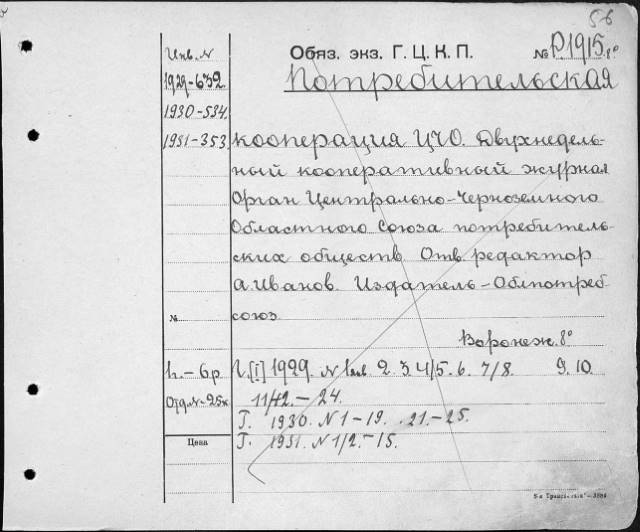 56
Инв. №
Обяз. экз. Г. Ц. К. П.
№ Р.1915. 8°
1929-632.
Потребительская
1930-534.
1931-353
кооперация ЦЧО. Двухнедель-
ный кооперативный журнал
Орган Центрально-Черноземного
Областного Союза потребитель-
ских обществ. Отв. редактор
А. Иванов. Издатель - Облпотреб-
№
союз.
Воронеж. 8°
ц. - 6 р.
Г. [I] 1929. N 1 2. 3. 4/5. 6. 7/8. 9. 10.
Отд. № - 25к
11/12. - 24.
Г. 1930. N 1 - 19. 21. - 25.
Цена
Г. 1931. N 1/2. - 15.